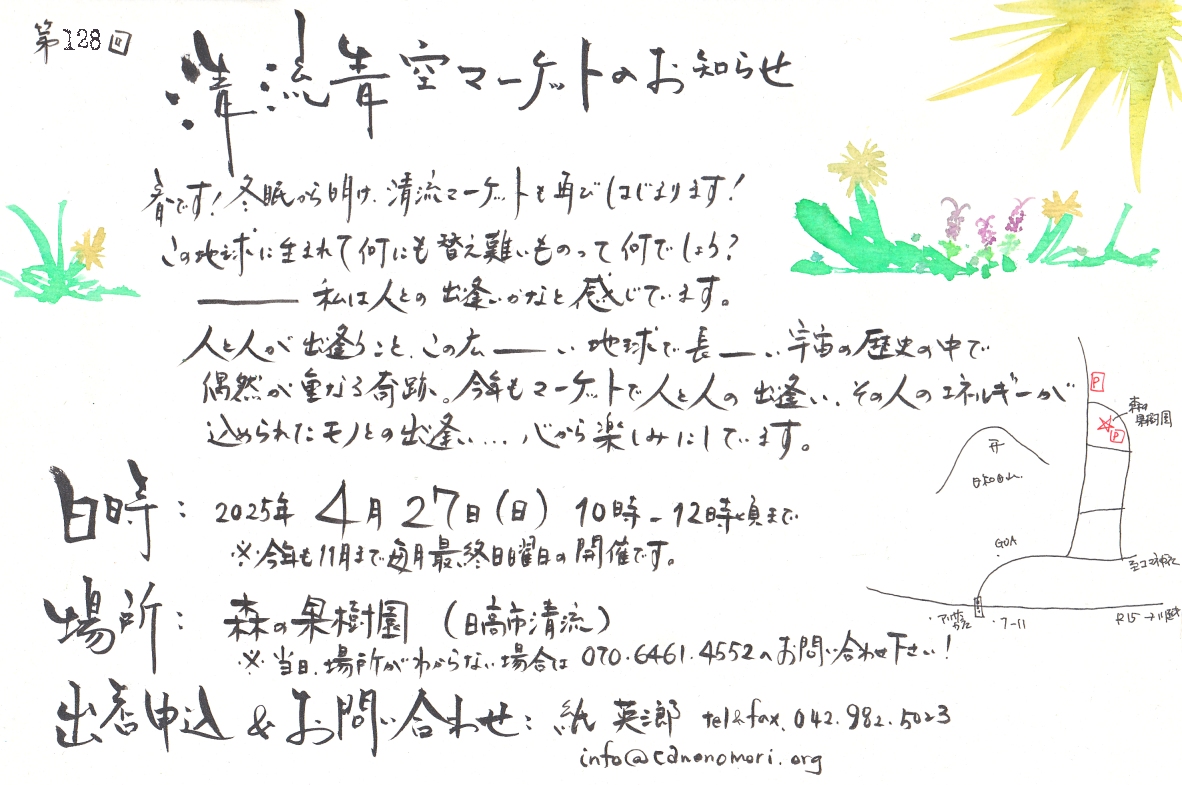 第128回
清流青空マーケットのお知らせ
春です！冬眠から明け、清流マーケットも再びはじまります！
この地球に生まれて何にも替え難いものって何でしょう？
――― 私は人との出逢いかなと感じています。
人と人が出逢うこと、この広――い地球で長―い宇宙の歴史の中で
偶然が重なる奇跡、。今年もマーケットで人と人の出逢い、その人のエネルギーが
込められたモノとの出逢い...心から楽しみにしています。
日時： 2025年 4月27日（日） 10時－12時頃まで
※今年も11月まで毎月最終日曜日の開催です。
場所： 森の果樹園 （日高市清流）
※当日、場所がわからない場合は 070.6461.4552へお問い合わせ下さい！
出店申込 & お問い合わせ： 紙 英三郎 tel&fax. 042.982.5023
info@canonomori.org
P
森の
果樹園
P
日和田山
GOA
至コマ神社
7-11
R15→川越